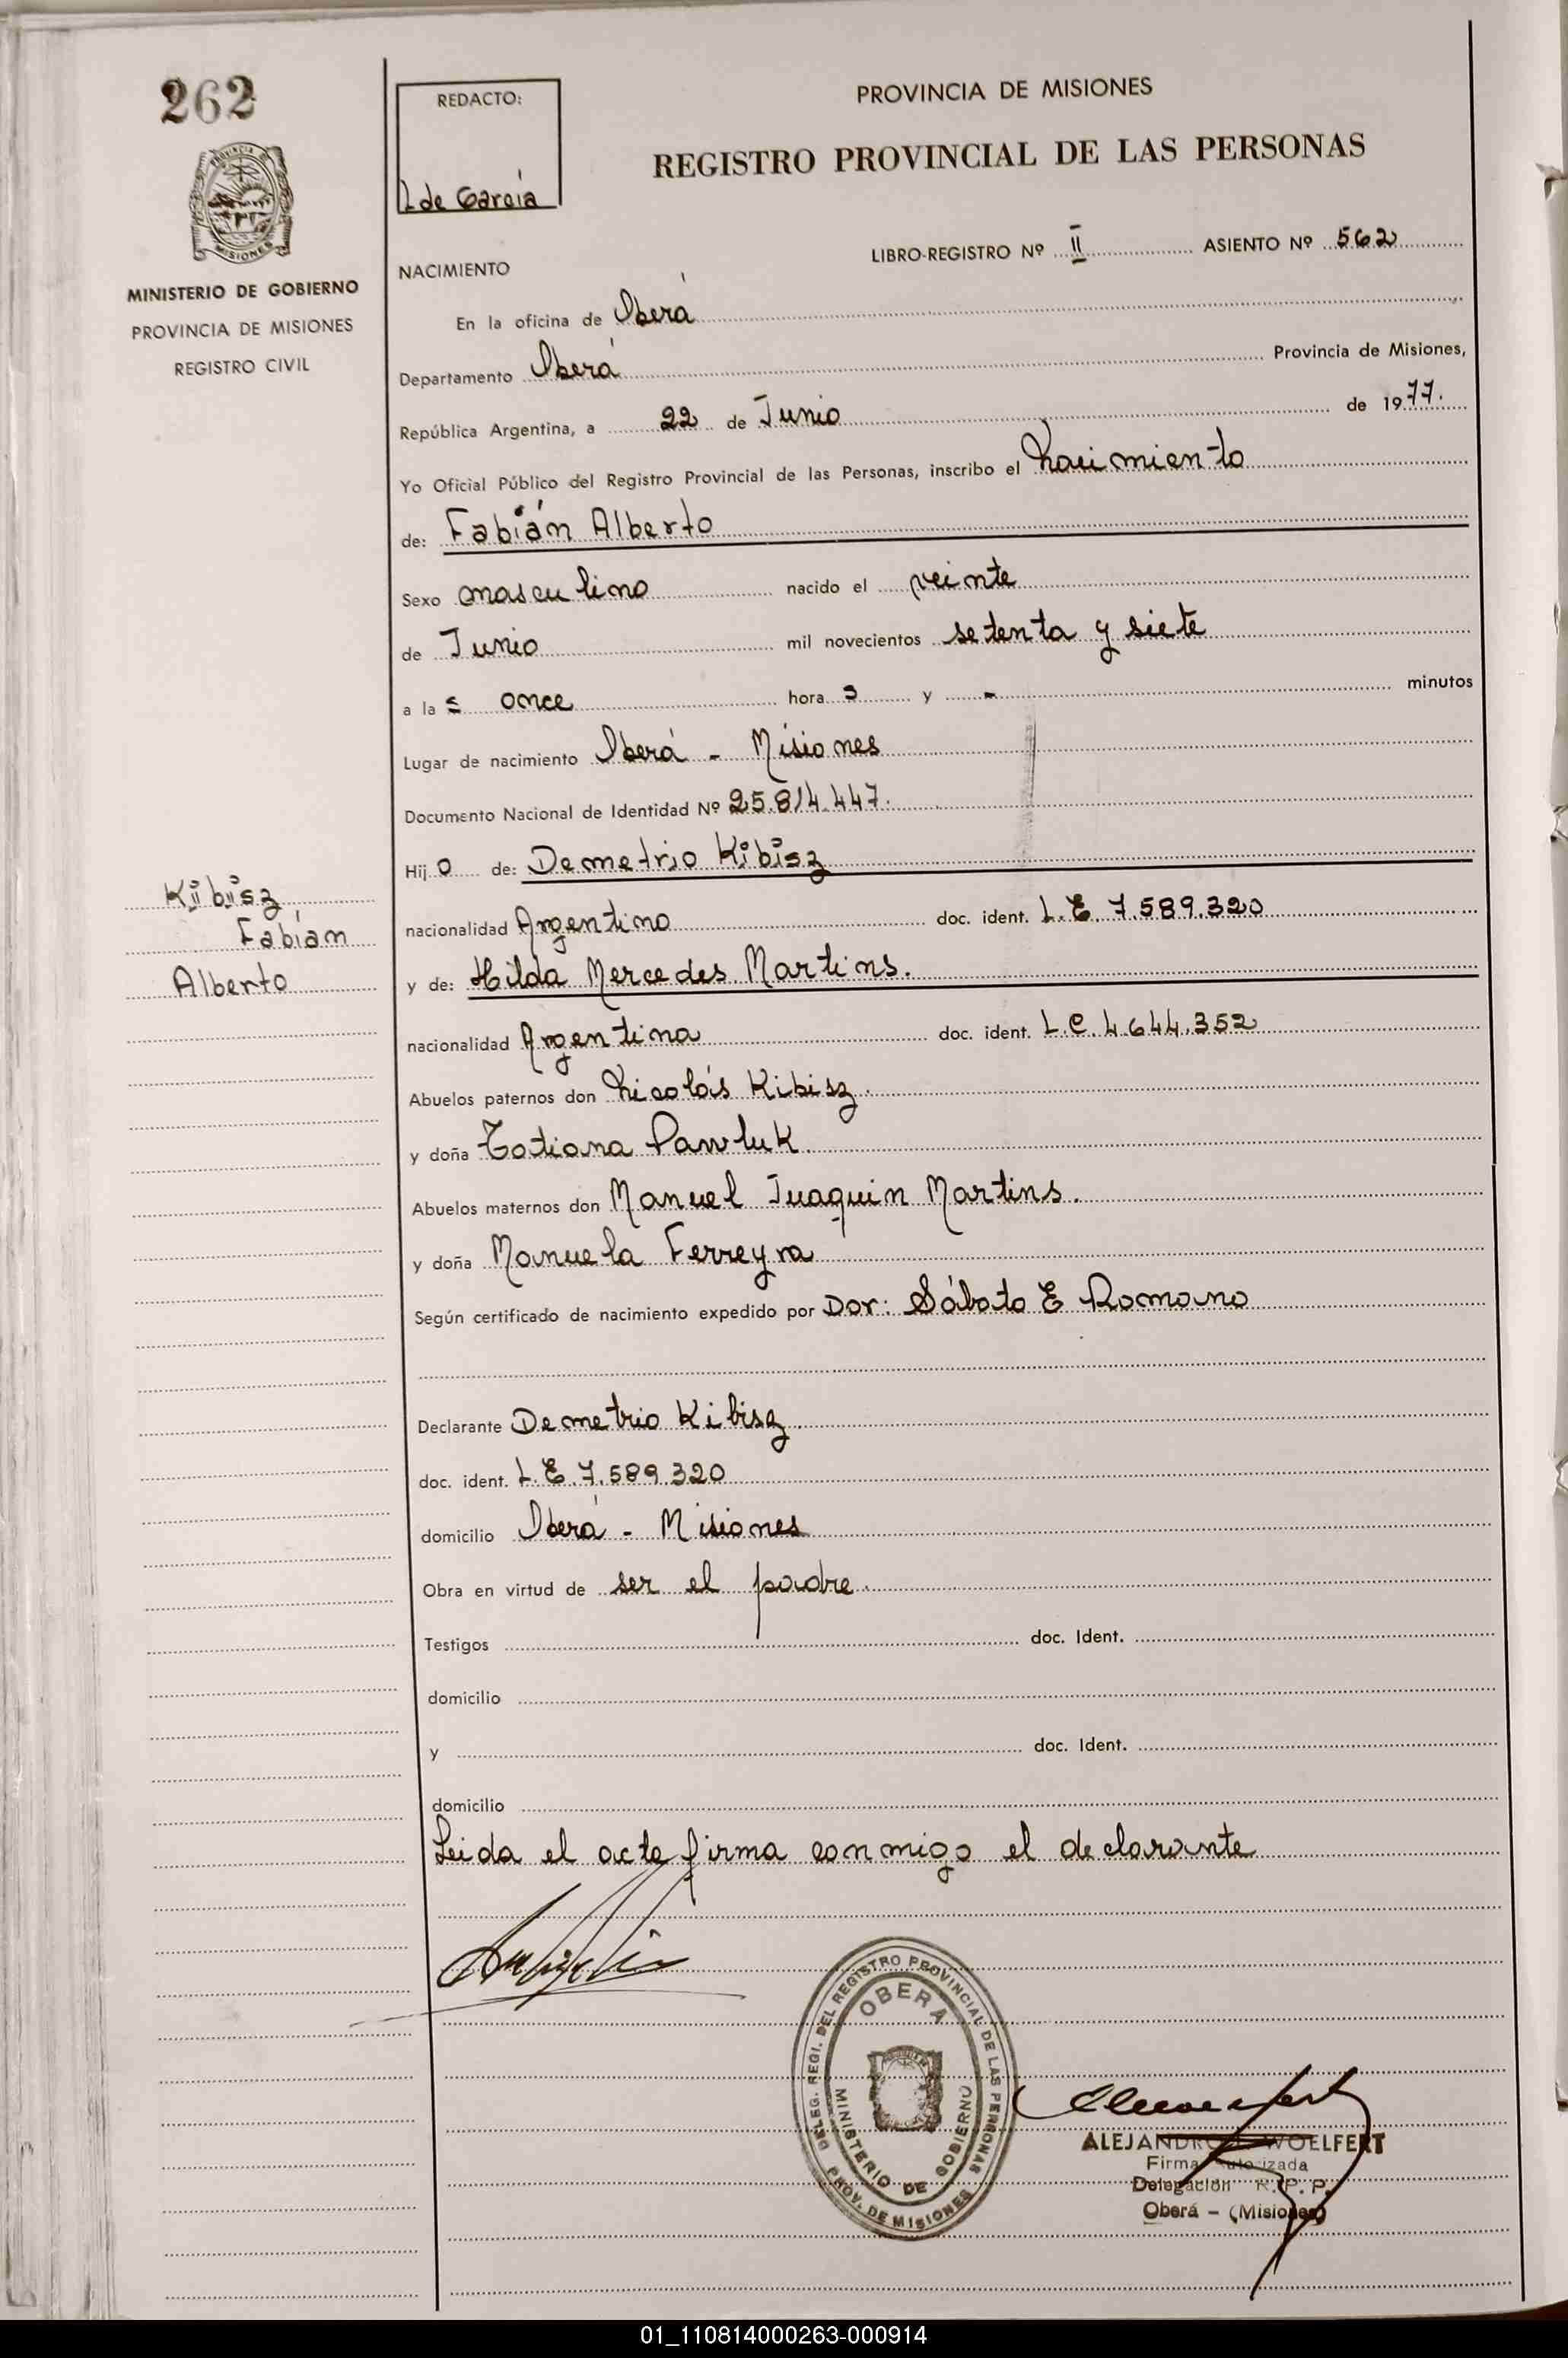 262
PROVINCIA DE MISIONES
MINISTERIO DE GOBIERNO
PROVINCIA DE MISIONES
REGISTRO CIVIL
REDACTO:
L de García
PROVINCIA DE MISIONES
REGISTRO PROVINCIAL DE LAS PERSONAS
LIBRO-REGISTRO Nº II ASIENTO Nº 562
NACIMIENTO
En la oficina de Oberá
Departamento Oberá Provincia de Misiones,
República Argentina, a 22 de Junio de 1977.
Yo Oficial Público del Registro Provincial de las Personas, inscribo el Nacimiento
de: Fabián Alberto
Sexo masculino nacido el veinte
de Junio mil novecientos setenta y siete
a las once horas y - minutos
Lugar de nacimiento Oberá - Misiones
Documento Nacional de Identidad Nº 25.814.447.
Hijo de: Demetrio Kibisz
nacionalidad Argentino doc. ident. L.E. 7.589.320
y de: Hilda Mercedes Martins.
nacionalidad Argentina doc. ident. L.C. 4.644.352
Abuelos paternos don Nicolás Kibisz.
y doña Tatiana Pawluk.
Abuelos maternos don Manuel Juaquin Martins.
y doña Manuela Ferreyra
Según certificado de nacimiento expedido por Dor: Sábato E Romano
Declarante Demetrio Kibisz.
doc. ident. L.E. 7.589.320
domicilio Oberá - Misiones
Obra en virtud de ser el padre.
Testigos doc. Ident.
domicilio
y doc. Ident.
domicilio
Leida el acta firma conmigo el declarante
Kibisz
Fabián
Alberto
DELEG. REGI. DEL REGISTRO PROVINCIAL DE LAS PERSONAS
OBERA
MINISTERIO DE GOBIERNO
PROV. DE MISIONES
ALEJANDRO WOELFERT
Firma Autorizada
Delegación R. P. P.
Oberá - (Misiones)
01_110814000263-000914